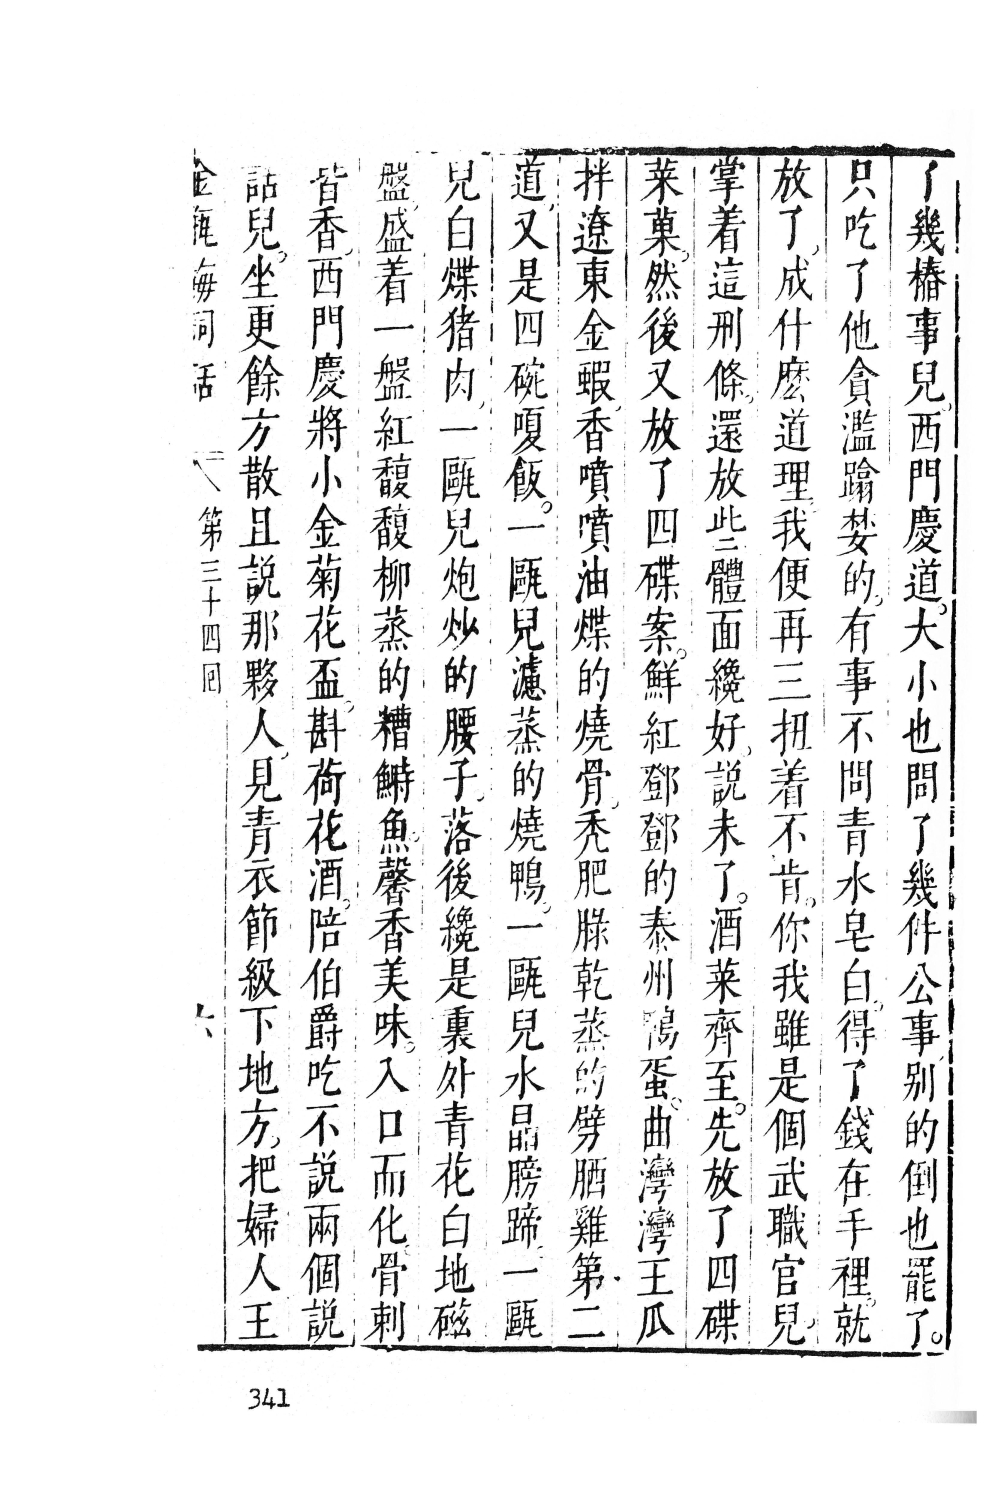 了幾樁事兒。西門慶道。大小也問了幾件公事。別的倒也罷了。
只吃了他貪濫蹹婪的。有事不問青水皂白。得了錢在手裡。就
放了。成什麽道理。我便再三扭着不肯。你我雖是個武職官兒。
掌着這刑條。還放些體面纔好。説未了。酒菜齊至。先放了四碟
菜菓。然後又放了四碟案。鮮紅鄧鄧的泰州鴨蛋。曲灣灣王瓜
拌遼東金蝦。香噴噴油煠的燒骨。禿肥𦠿乾蒸的劈𦞂雞。第二
道。又是四碗嗄飯。一甌兒濾蒸的燒鴨。一甌兒水晶膀蹄。一甌
兒白煠猪肉。一甌兒炮炒的腰子。落後纔是裏外青花白地磁
盤。盛着一盤紅馥馥柳蒸的糟鰣魚。馨香美味。入口而化。骨刺
皆香。西門慶將小金菊花盃。斟荷花酒。陪伯爵吃。不説兩個説
話兒。坐更餘方散。且説那夥人。見青衣節級下地方。把婦人王
金瓶梅詞話 第三十四回 六
341